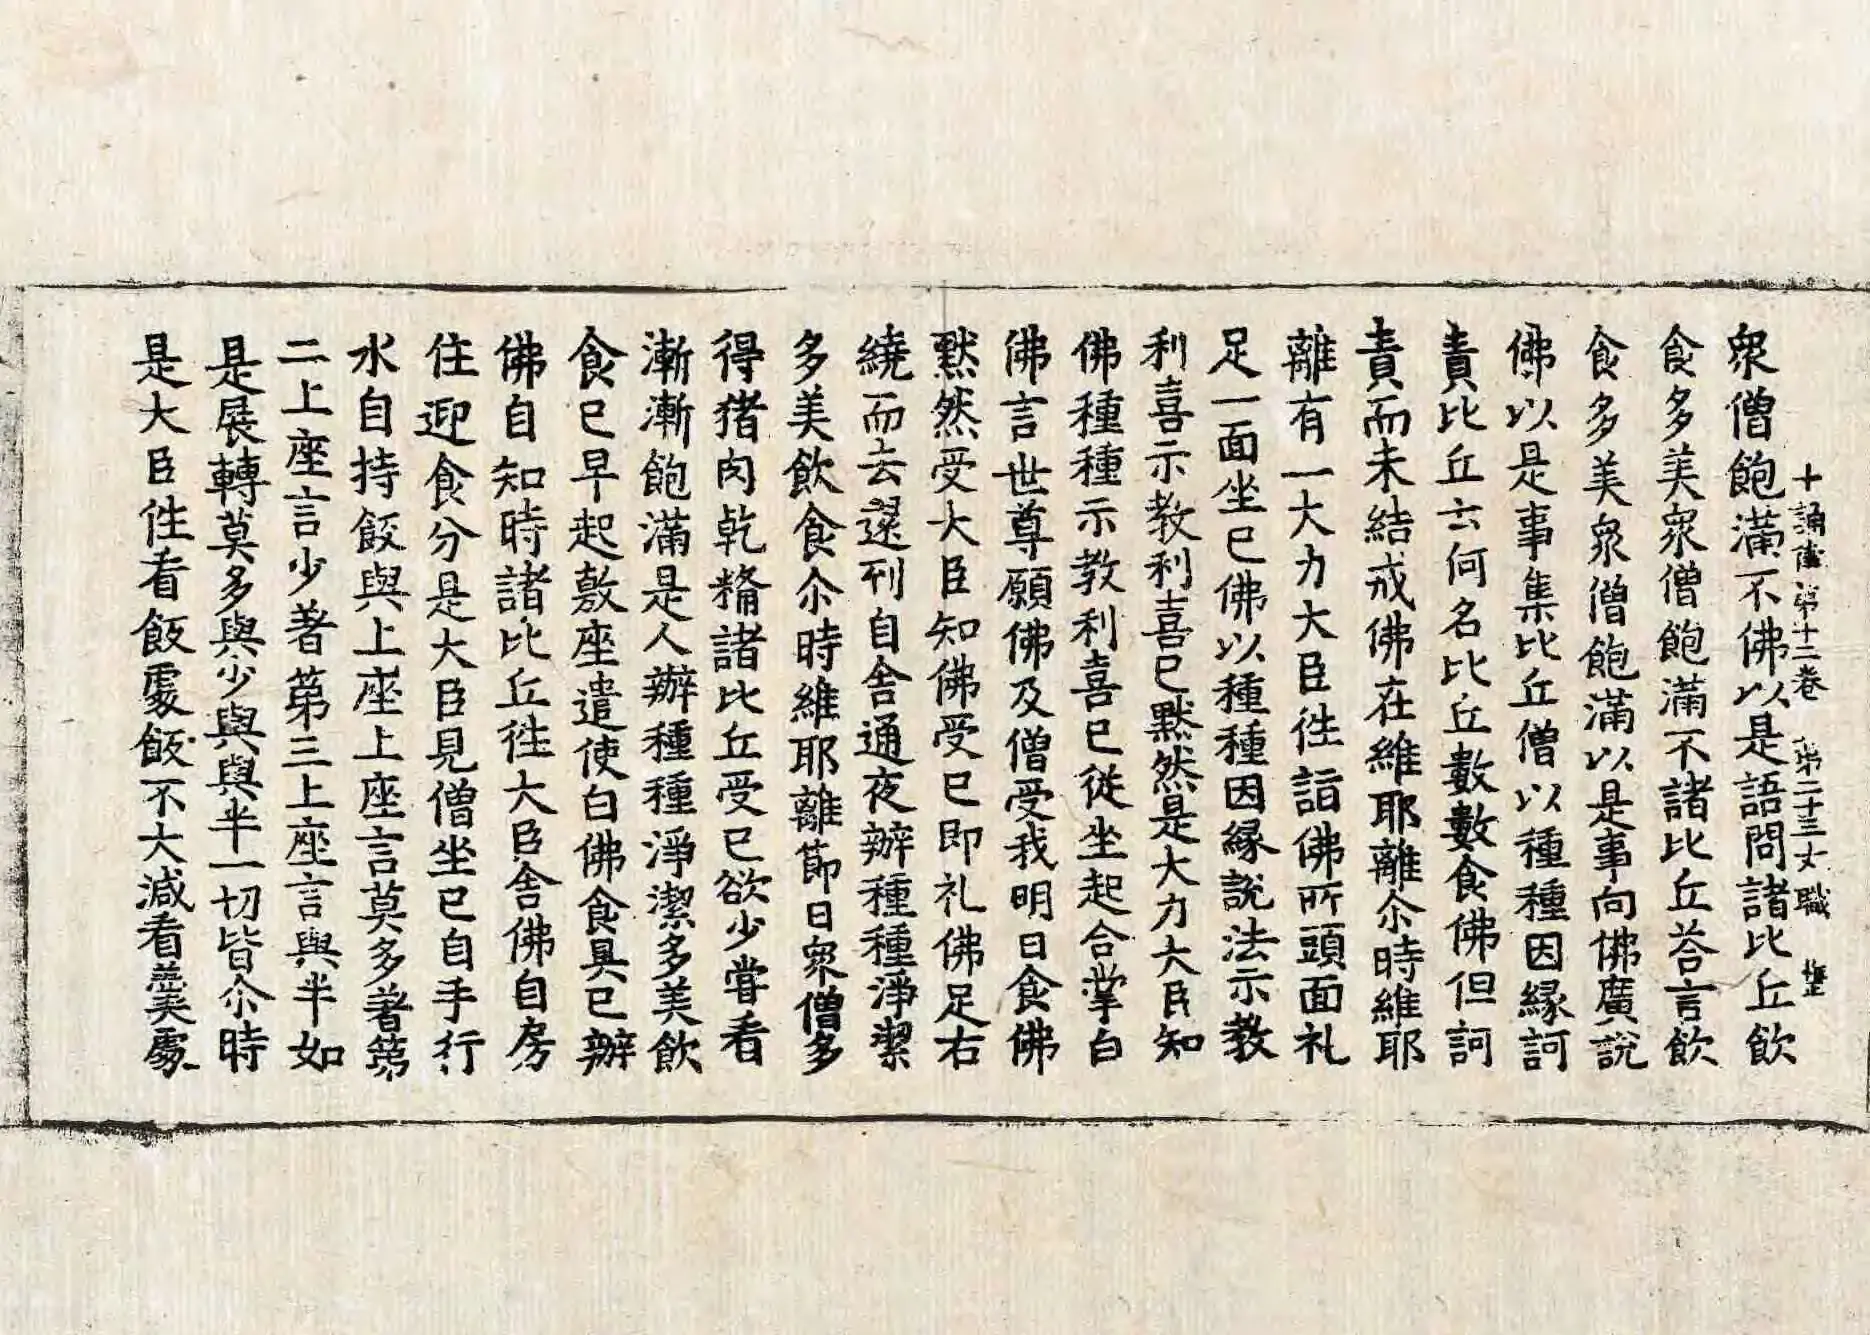 十誦律第十三卷 第二十三丈 職
衆僧飽滿不佛以是語問諸比丘飲
食多美衆僧飽滿不諸比丘荅言飲
食多美衆僧飽滿以是事向佛廣說
佛以是事集比丘僧以種種因緣訶
責比丘云何名比丘數數食佛但訶
責而未結戒佛在維耶離尒時維耶
離有一大力大臣徃詣佛所頭面礼
足一面坐已佛以種種因緣說法示教
利喜示教利喜已默然是大力大臣知
佛種種示教利喜已從坐起合掌白
佛言世尊願佛及僧受我明日食佛
默然受大臣知佛受已即礼佛足右
繞而去還到自舍通夜辦種種淨潔
多美飲食尒時維耶離節日衆僧多
得猪肉乾糒諸比丘受已欲少甞看
漸漸飽滿是人辦種種淨潔多美飲
食已早起敷座遣使白佛食具已辦
佛自知時諸比丘徃大臣舍佛自房
住迎食分是大臣見僧坐已自手行
水自持飯與上座上座言莫多著第
二上座言少著第三上座言與半如
是展轉莫多與少與與半一切皆尒時
是大臣徃看飯處飯不大減看羹處